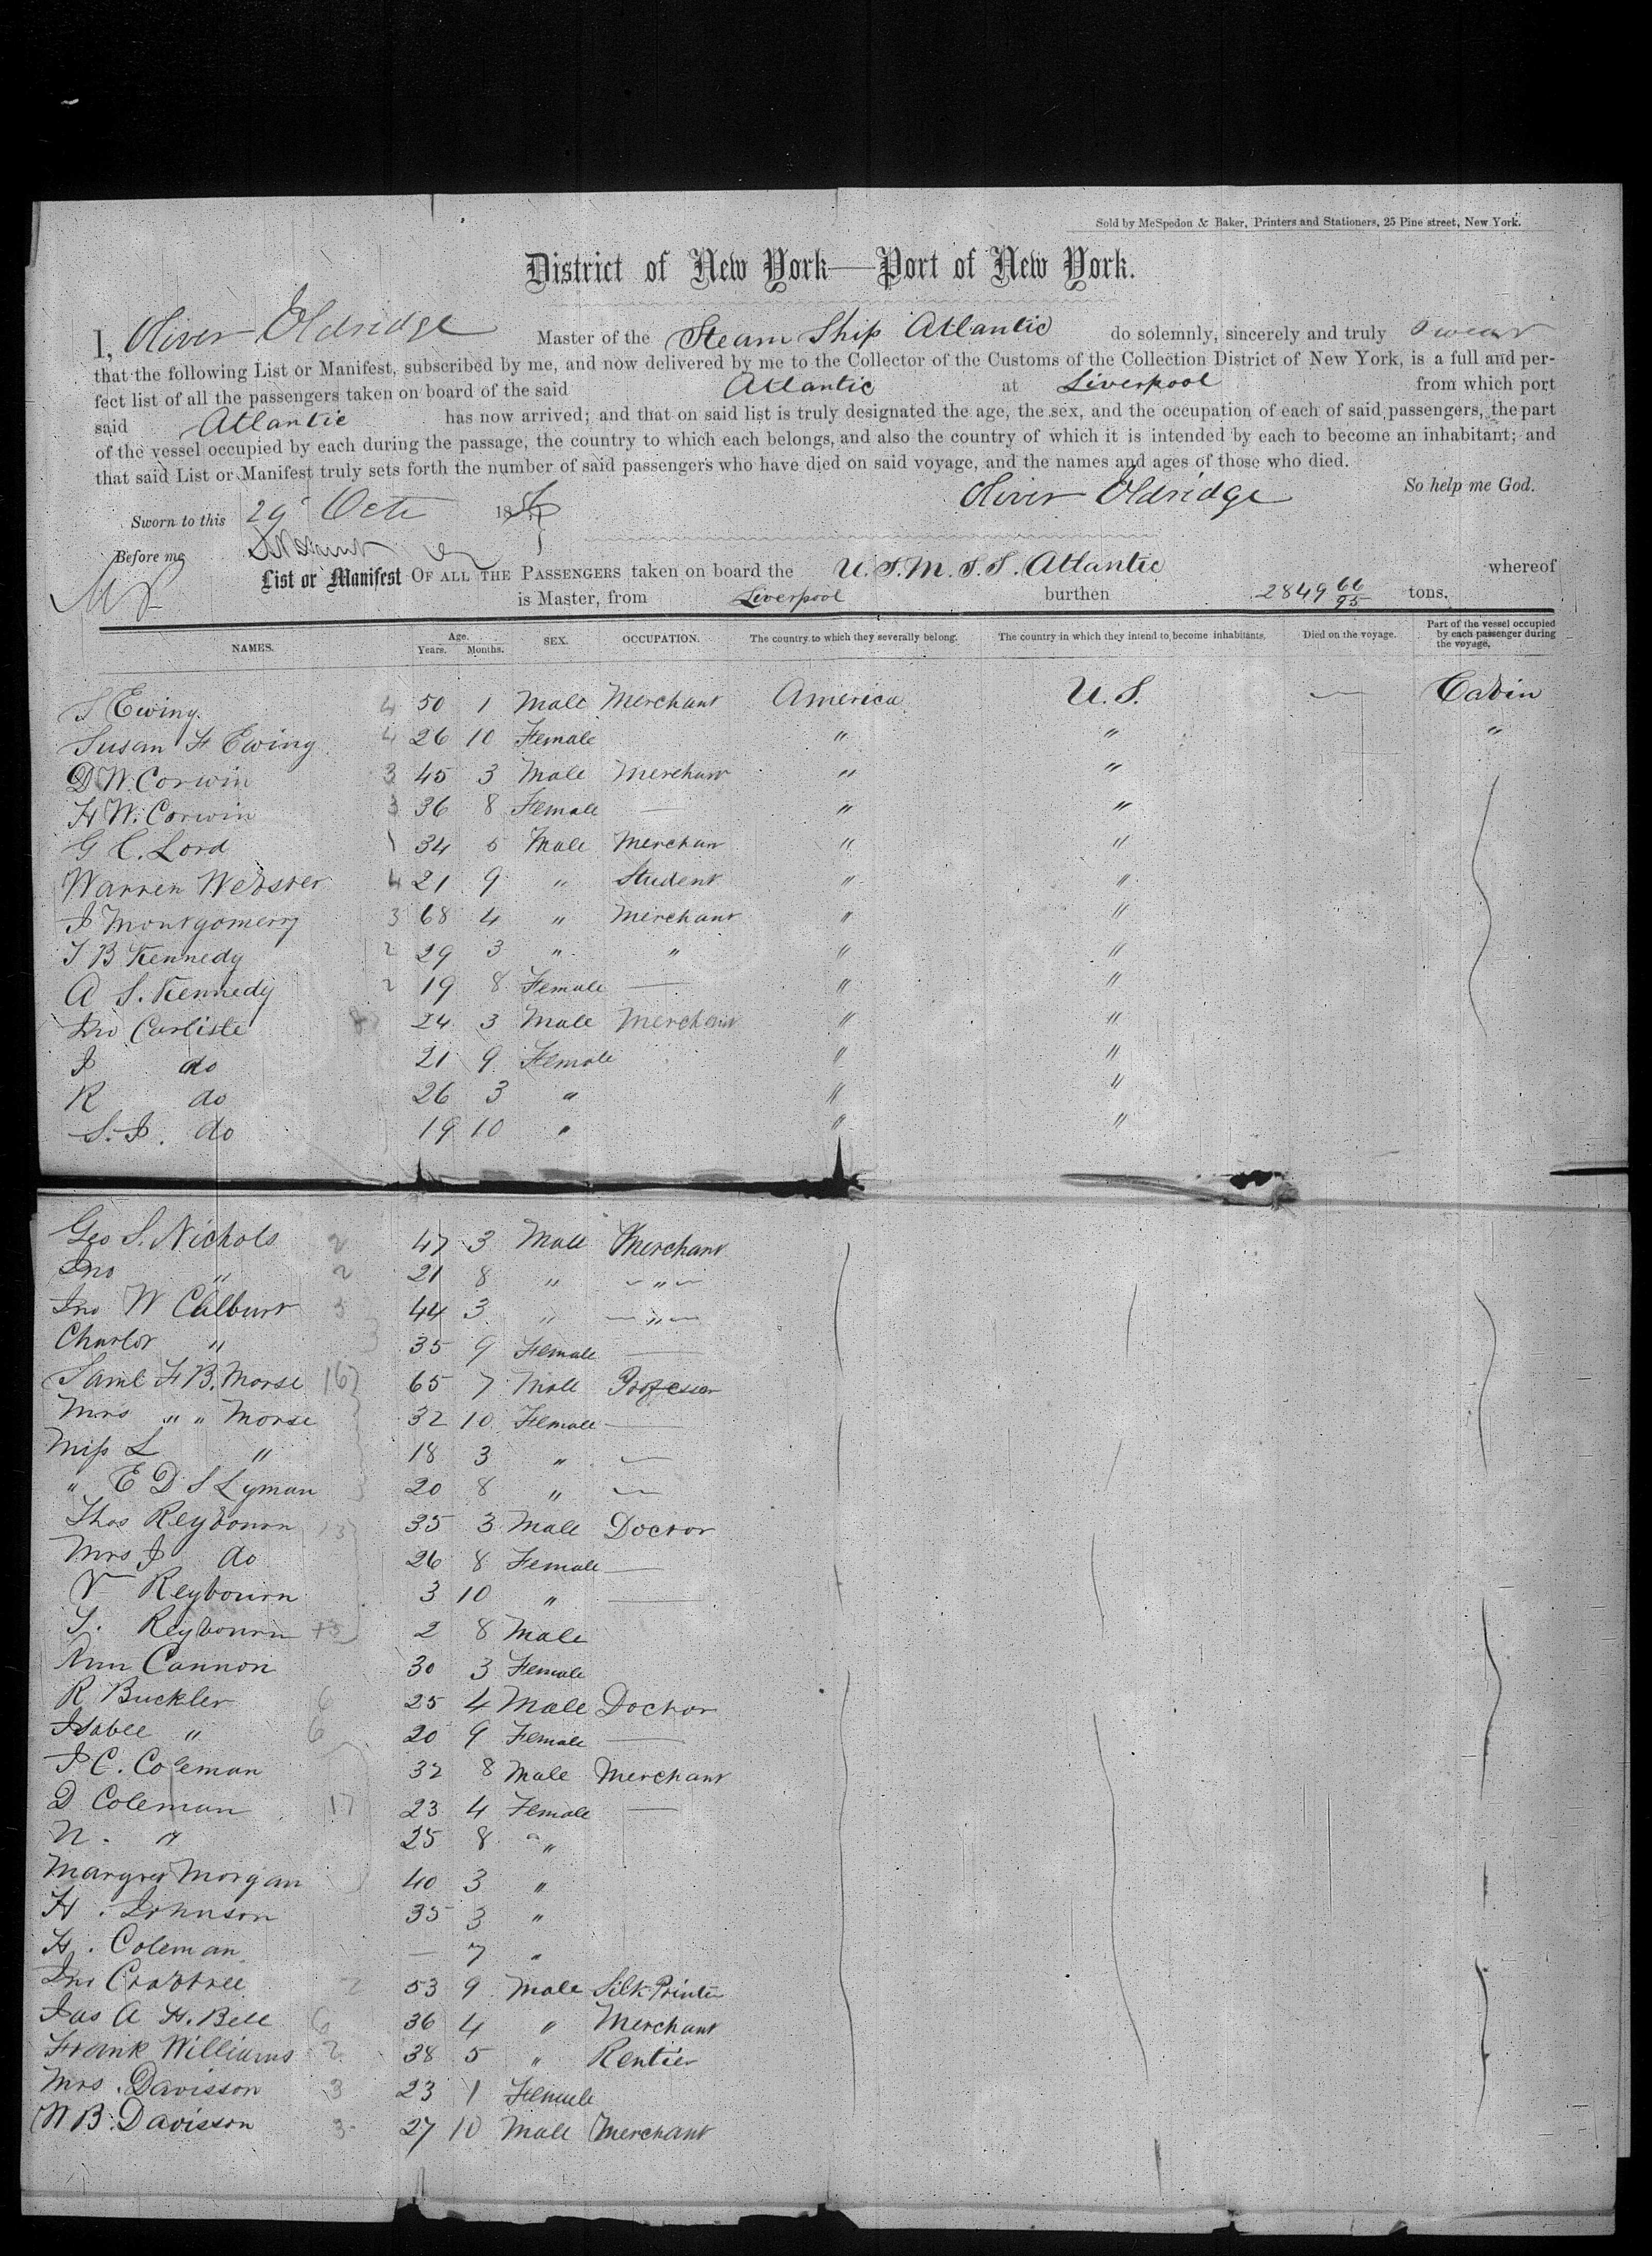 Sold by McSpedon & Baker, Printers and Stationers, 25 Pine street, New York.
District of New York—Port of New York.
I, Oliver Eldridge Master of the Steam Ship Atlantic do solemnly, sincerely and truly swear
that the following List or Manifest, subscribed by me, and now delivered by me to the Collector of the Customs of the Collection District of New York, is a full and per-
fect list of all the passengers taken on board of the said Atlantic at Liverpool from which port
said Atlantic has now arrived; and that on said list is truly designated the age, the sex, and the occupation of each of said passengers, the part
of the vessel occupied by each during the passage, the country to which each belongs, and also the country of which it is intended by each to become an inhabitant; and
that said List or Manifest truly sets forth the number of said passengers who have died on said voyage, and the names and ages of those who died.
So help me God.
Oliver Eldridge
Sworn to this 29 Octr 18
Before me
List or Manifest OF ALL THE PASSENGERS taken on board the U.S.M.S.S. Atlantic whereof
is Master, from Liverpool burthen 2849 66/95 tons.
NAMES. Age. Years. Months. SEX. OCCUPATION. The country to which they severally belong. The country in which they intend to become inhabitants. Died on the voyage. Part of the vessel occupied by each passenger during the voyage.
S Ewing 4 50 1 Male Merchant America U.S. — Cabin
Susan H Ewing 4 26 10 Female " " "
D W. Corwin 3 45 3 Male Merchant " "
H W. Corwin 3 36 8 Female — " "
G C. Lord 1 34 5 Male Merchan " "
Warren Webster 4 21 9 " Student " "
J Montgomery 3 68 4 " Merchant " "
T B Kennedy 2 29 3 " " " "
A S. Kennedy 2 19 8 Female — " "
Jno Carlisle 8 24 3 Male Merchant " "
J do 21 9 Female " "
R do 26 3 " " "
S. J. do 19 10 " " "
Geo S. Nichols 2 47 3 Male Merchant
Jno " 2 21 8 " "
Jno W Colburt 3 44 3 " "
Charlot " 3 35 9 Female —
Saml F B. Morse 16 65 7 Male Professor
Mrs " " Morse 32 10 Female —
Miss L " 18 3 " —
" E D S Lyman 20 8 " —
Thos Reybourn 13 35 3 Male Doctor
Mrs J do 26 8 Female —
V Reybourn 3 10 " —
S. Reybourn 13 2 8 Male
Ann Cannon 30 3 Female
R Buckler 6 25 4 Male Doctor
Isabel " 6 20 9 Female —
J C. Coleman 32 8 Male Merchant
D Coleman 17 23 4 Female —
N. " 25 8 "
Margret Morgan 40 3 "
H. Johnson 35 3 "
H. Coleman — 7 "
Jno Crabtree 2 53 9 Male Silk Printer
Jas A H. Bell 6 36 4 " Merchant
Frank Williams 2 38 5 " Rentier
Mrs. Davisson 3 23 1 Female
W B. Davisson 3 27 10 Male Merchant